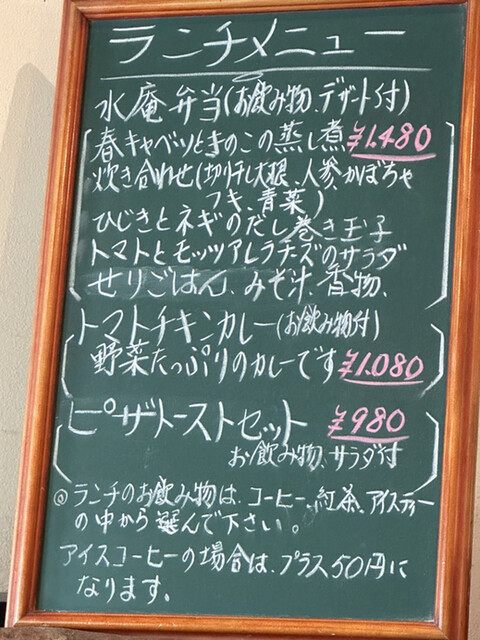 ランチメニュー
水庵弁当(お飲み物、デザート付)
春キャベツときのこの蒸し煮 ¥1,480
炊き合わせ(切干し大根、人参、かぼちゃ
フキ、青菜)
ひじきとネギのだし巻き玉子
トマトとモッツアレラチーズのサラダ
せりごはん、みそ汁、香物、
トマトチキンカレー(お飲み物付)
野菜たっぷりのカレーです ¥1,080
ピザトーストセット ¥980
お飲み物、サラダ付
◎ランチのお飲み物は、コーヒー、紅茶、アイスティー
の中から選んで下さい。
アイスコーヒーの場合は、プラス50円に
なります。